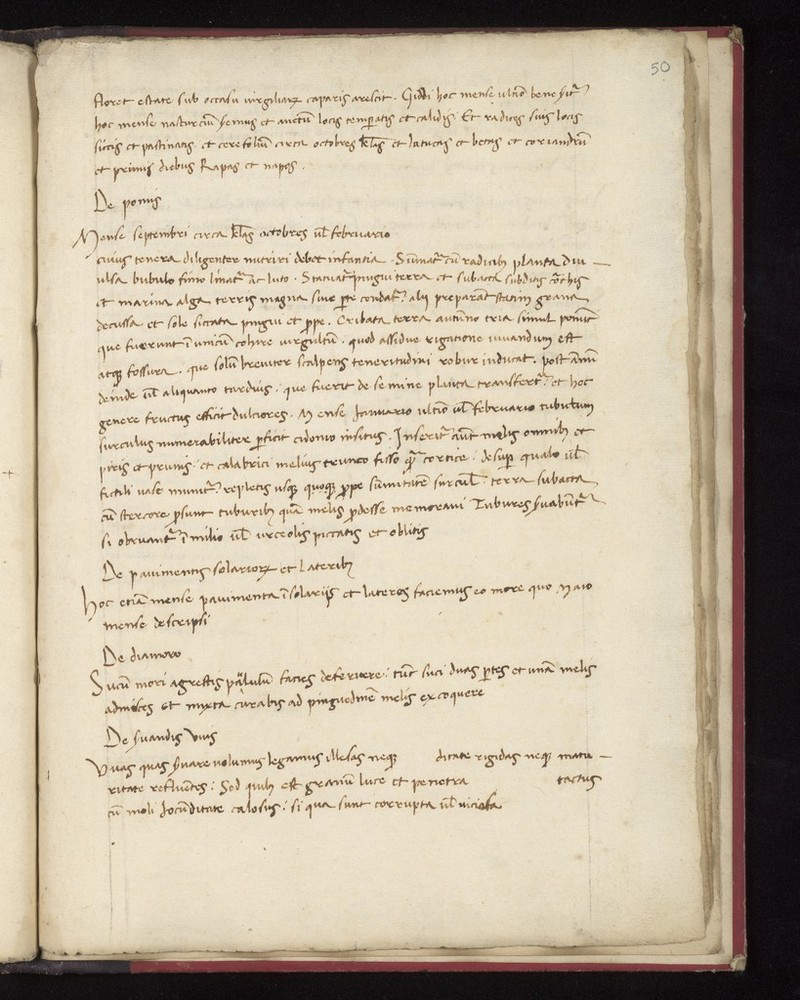 50
floret estate sub occasu virgiliarꝝ caparis arescit. Giddi hoc mense ultiō bene
hoc mense nasturciū semus et anetū locis temꝑatis et calidis Et radices suis locis
siccis et pastinatis et cerefoliū circa octobres kl̄as et latucas et betas et coriandrū
et primis diebus Rapas et napos.
De pomis
Mense septembri circa kl̄as octobres ul̄ februario
cuius tenera diligenter nutriri debet infantia. Sumat᷑ cū radicib planta diu
ulsa bubulo fimo linat᷑ ac luto. Statuat᷑ pingui terra et subacta subditis cōchis
et marina alga terris magna sui ꝑte condat᷑. alij preparāt grana
decussa et sole siccata pingui et ꝓpe. Cribata terra autūno tria simul ponūt
que fuerunt ī unicū cohire virgultū. quod assidue rigatione iuuandum est
atqꝫ fossura. que solū breuiter scalpens teneritudini robur inducat. post annū
deinde ul̄ aliquanto tardius. que fuerit de semine planta transfert᷑. et hoc
genere fructus efficit dulciores. Mense Januario ultiō ul̄ februario tubulum
surculus numerabiliter ꝑficit cidonio insitus. Inserit᷑ aūt melis omnibꝫ et
piris et prunis. et calabrici melius trunco fisso qꝫ cortice. desuꝑ qualo ul̄
fictili vase munit᷑. repletis usqꝫ quoqꝫ ꝓpe sūmitatē surcul terra subacta
cū stercore ꝓsunt tuburibꝫ quā melis ꝓdesse memoraui Tubures
si obruant᷑ ī milio ul̄ urceolis piccatis et oblitis
De pauimentis solariorꝝ et Lateribꝫ
Hoc etiā mense pauimenta ī solarijs et lateres faciemus eo more quo Maio
mense descripsi
De diamoro
Sucū mori agrestis paululū facies deferuere. tūc suci duas ꝑtes et unā melis
admisces et mixta curabis ad pinguedinē melis excoquere
De suandis Vuis
Vuas quas suare uolumus legamus illesas neqꝫ ditate rigidas neqꝫ matu
ritate refluentes. Sed quibꝫ est granū luce et penetra tactus
cū moli Jocūditate calosus. si qua sunt corrupta ul̄ viciosa